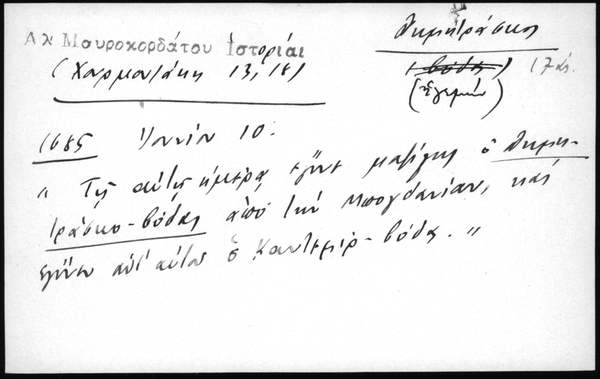 Αλ Μαυροκορδάτου Ἱστορίαι
(Χαρμουζάκη 13, 18)
Δημητράσκος
(βόδας) 17 αι.
(ἡγεμών)
1685 Ἰουνίου 10.
" Τῇ αὐτῇ ἡμέρᾳ ἐγίνε μαζίλης ὁ Δημη-
τράσκο-βόδας ἀπὸ τὴν Μπογδανίαν, καὶ
ἐγίνεν ἀντ' αὐτοῦ ὁ Καντεμίρ-βόδας. "